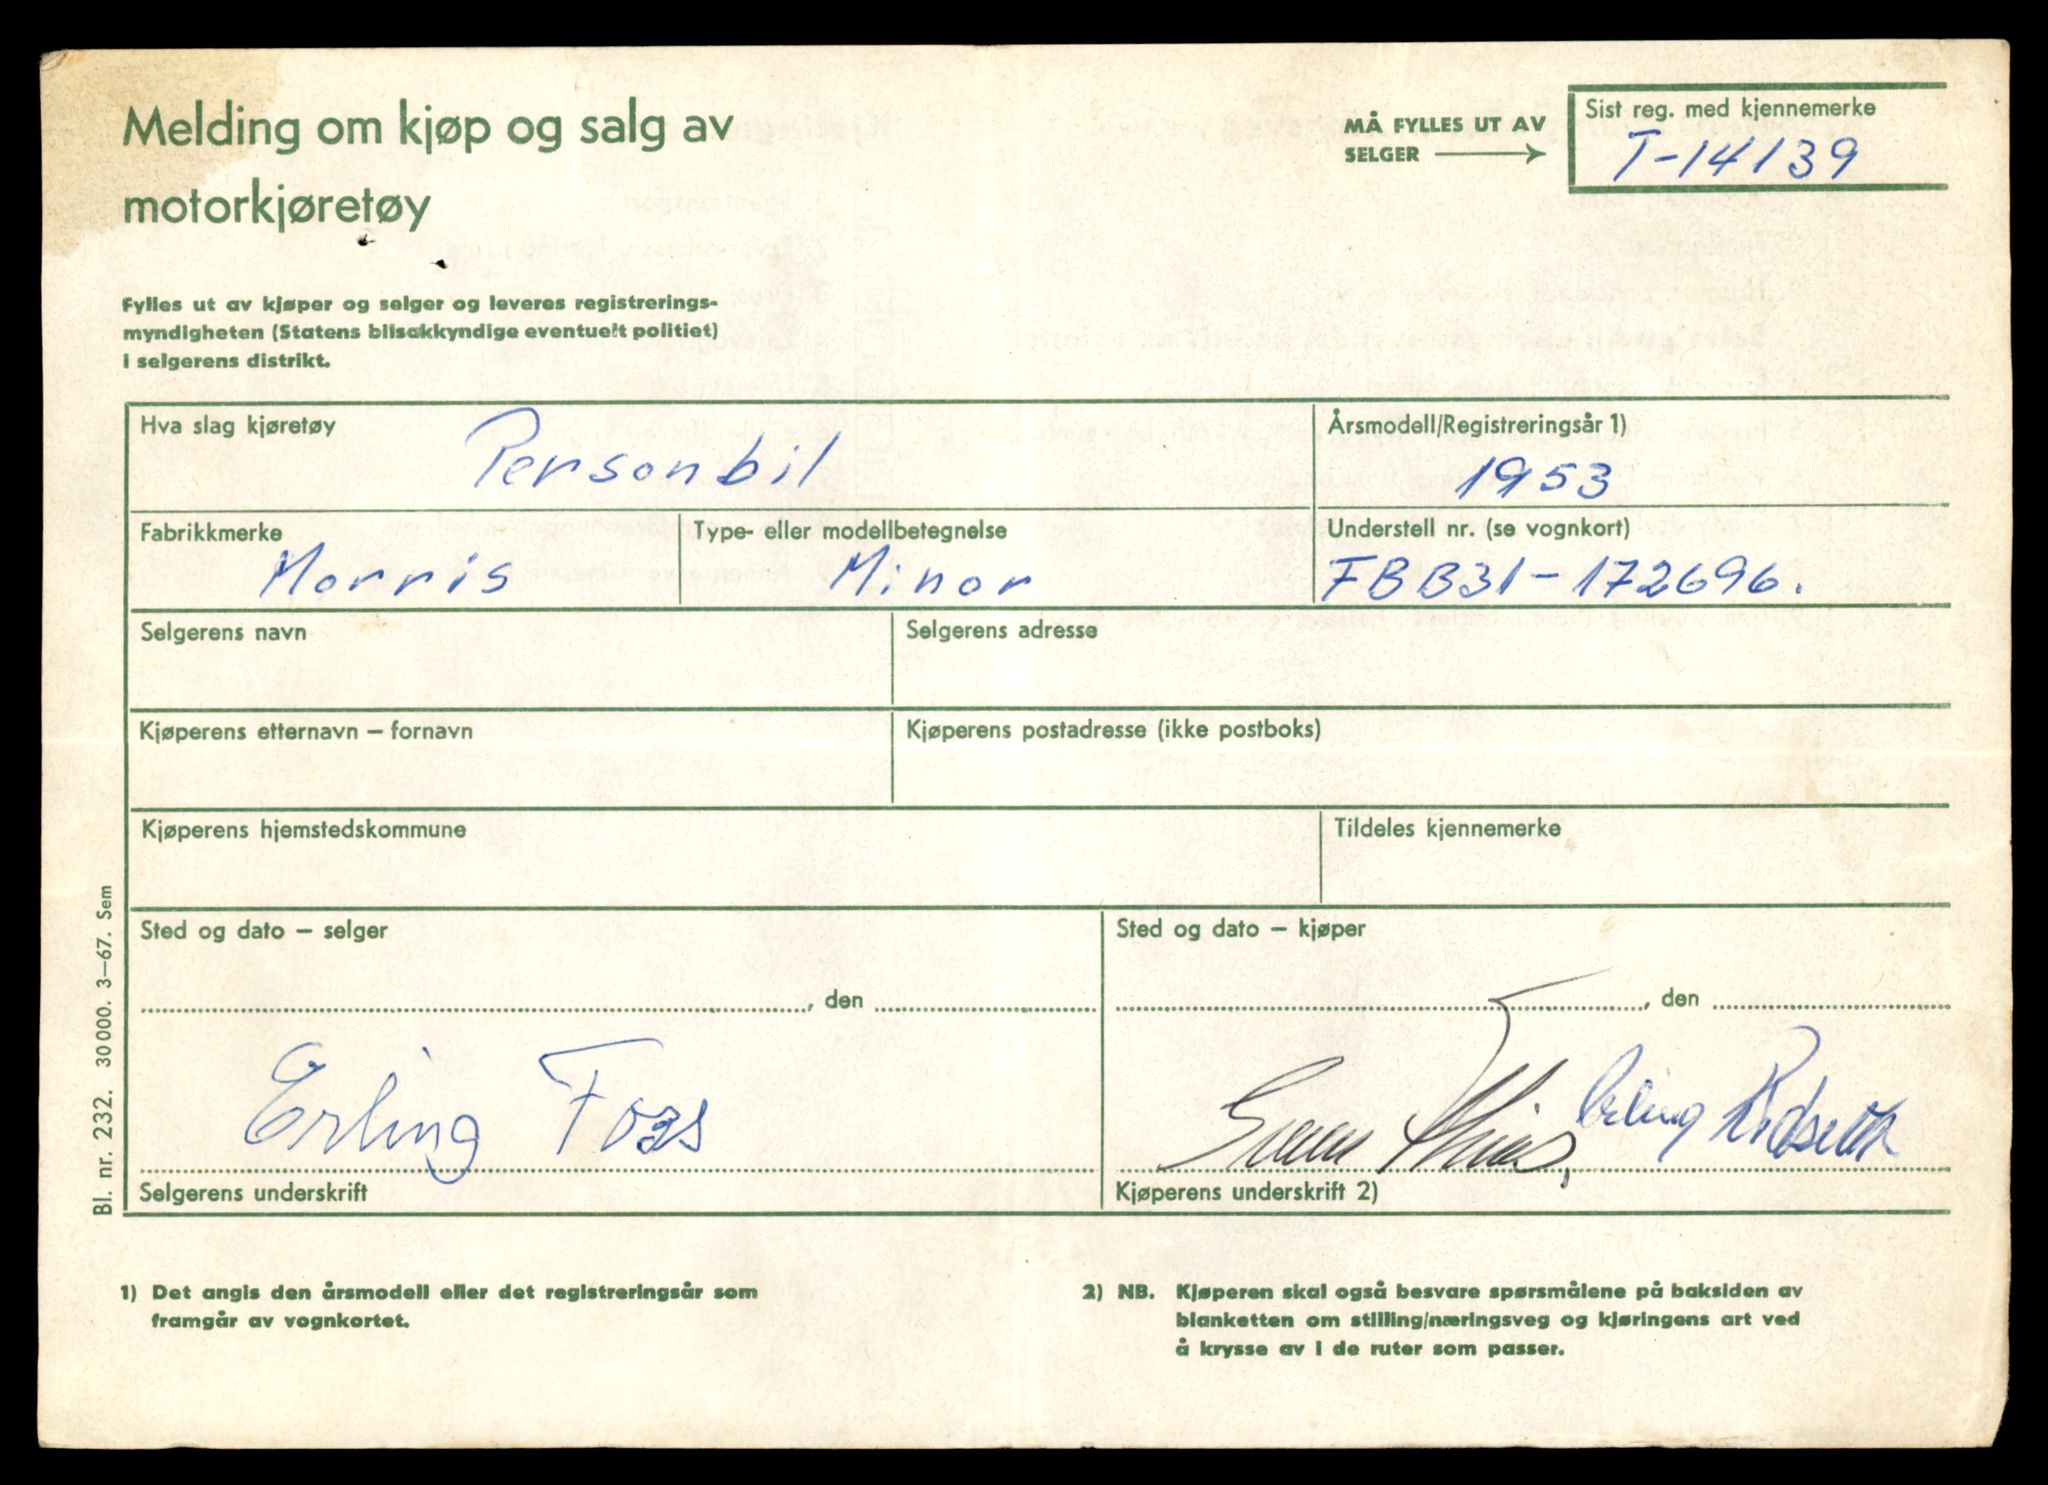 Melding om kjøp og salg av
motorkjøretøy
MÅ FYLLES UT AV
SELGER
Sist reg. med kjennemerke
T-14139
Fylles ut av kjøper og selger og leveres registrerings-
myndigheten (Statens bilsakkyndige eventuelt politiet)
i selgerens distrikt.
Hva slag kjøretøy
Personbil
Årsmodell/Registreringsår 1)
1953
Fabrikkmerke
Morris
Type- eller modellbetegnelse
Minor
Understell nr. (se vognkort)
FBB31-172696.
Selgerens navn
Selgerens adresse
Kjøperens etternavn – fornavn
Kjøperens postadresse (ikke postboks)
Kjøperens hjemstedskommune
Tildeles kjennemerke
Sted og dato – selger
, den
Sted og dato – kjøper
, den
Erling Foss
Erling
Selgerens underskrift
Kjøperens underskrift 2)
Bl. nr. 232. 30000. 3–67. Sem
1) Det angis den årsmodell eller det registreringsår som
framgår av vognkortet.
2) NB. Kjøperen skal også besvare spørsmålene på baksiden av
blanketten om stilling/næringsveg og kjøringens art ved
å krysse av i de ruter som passer.